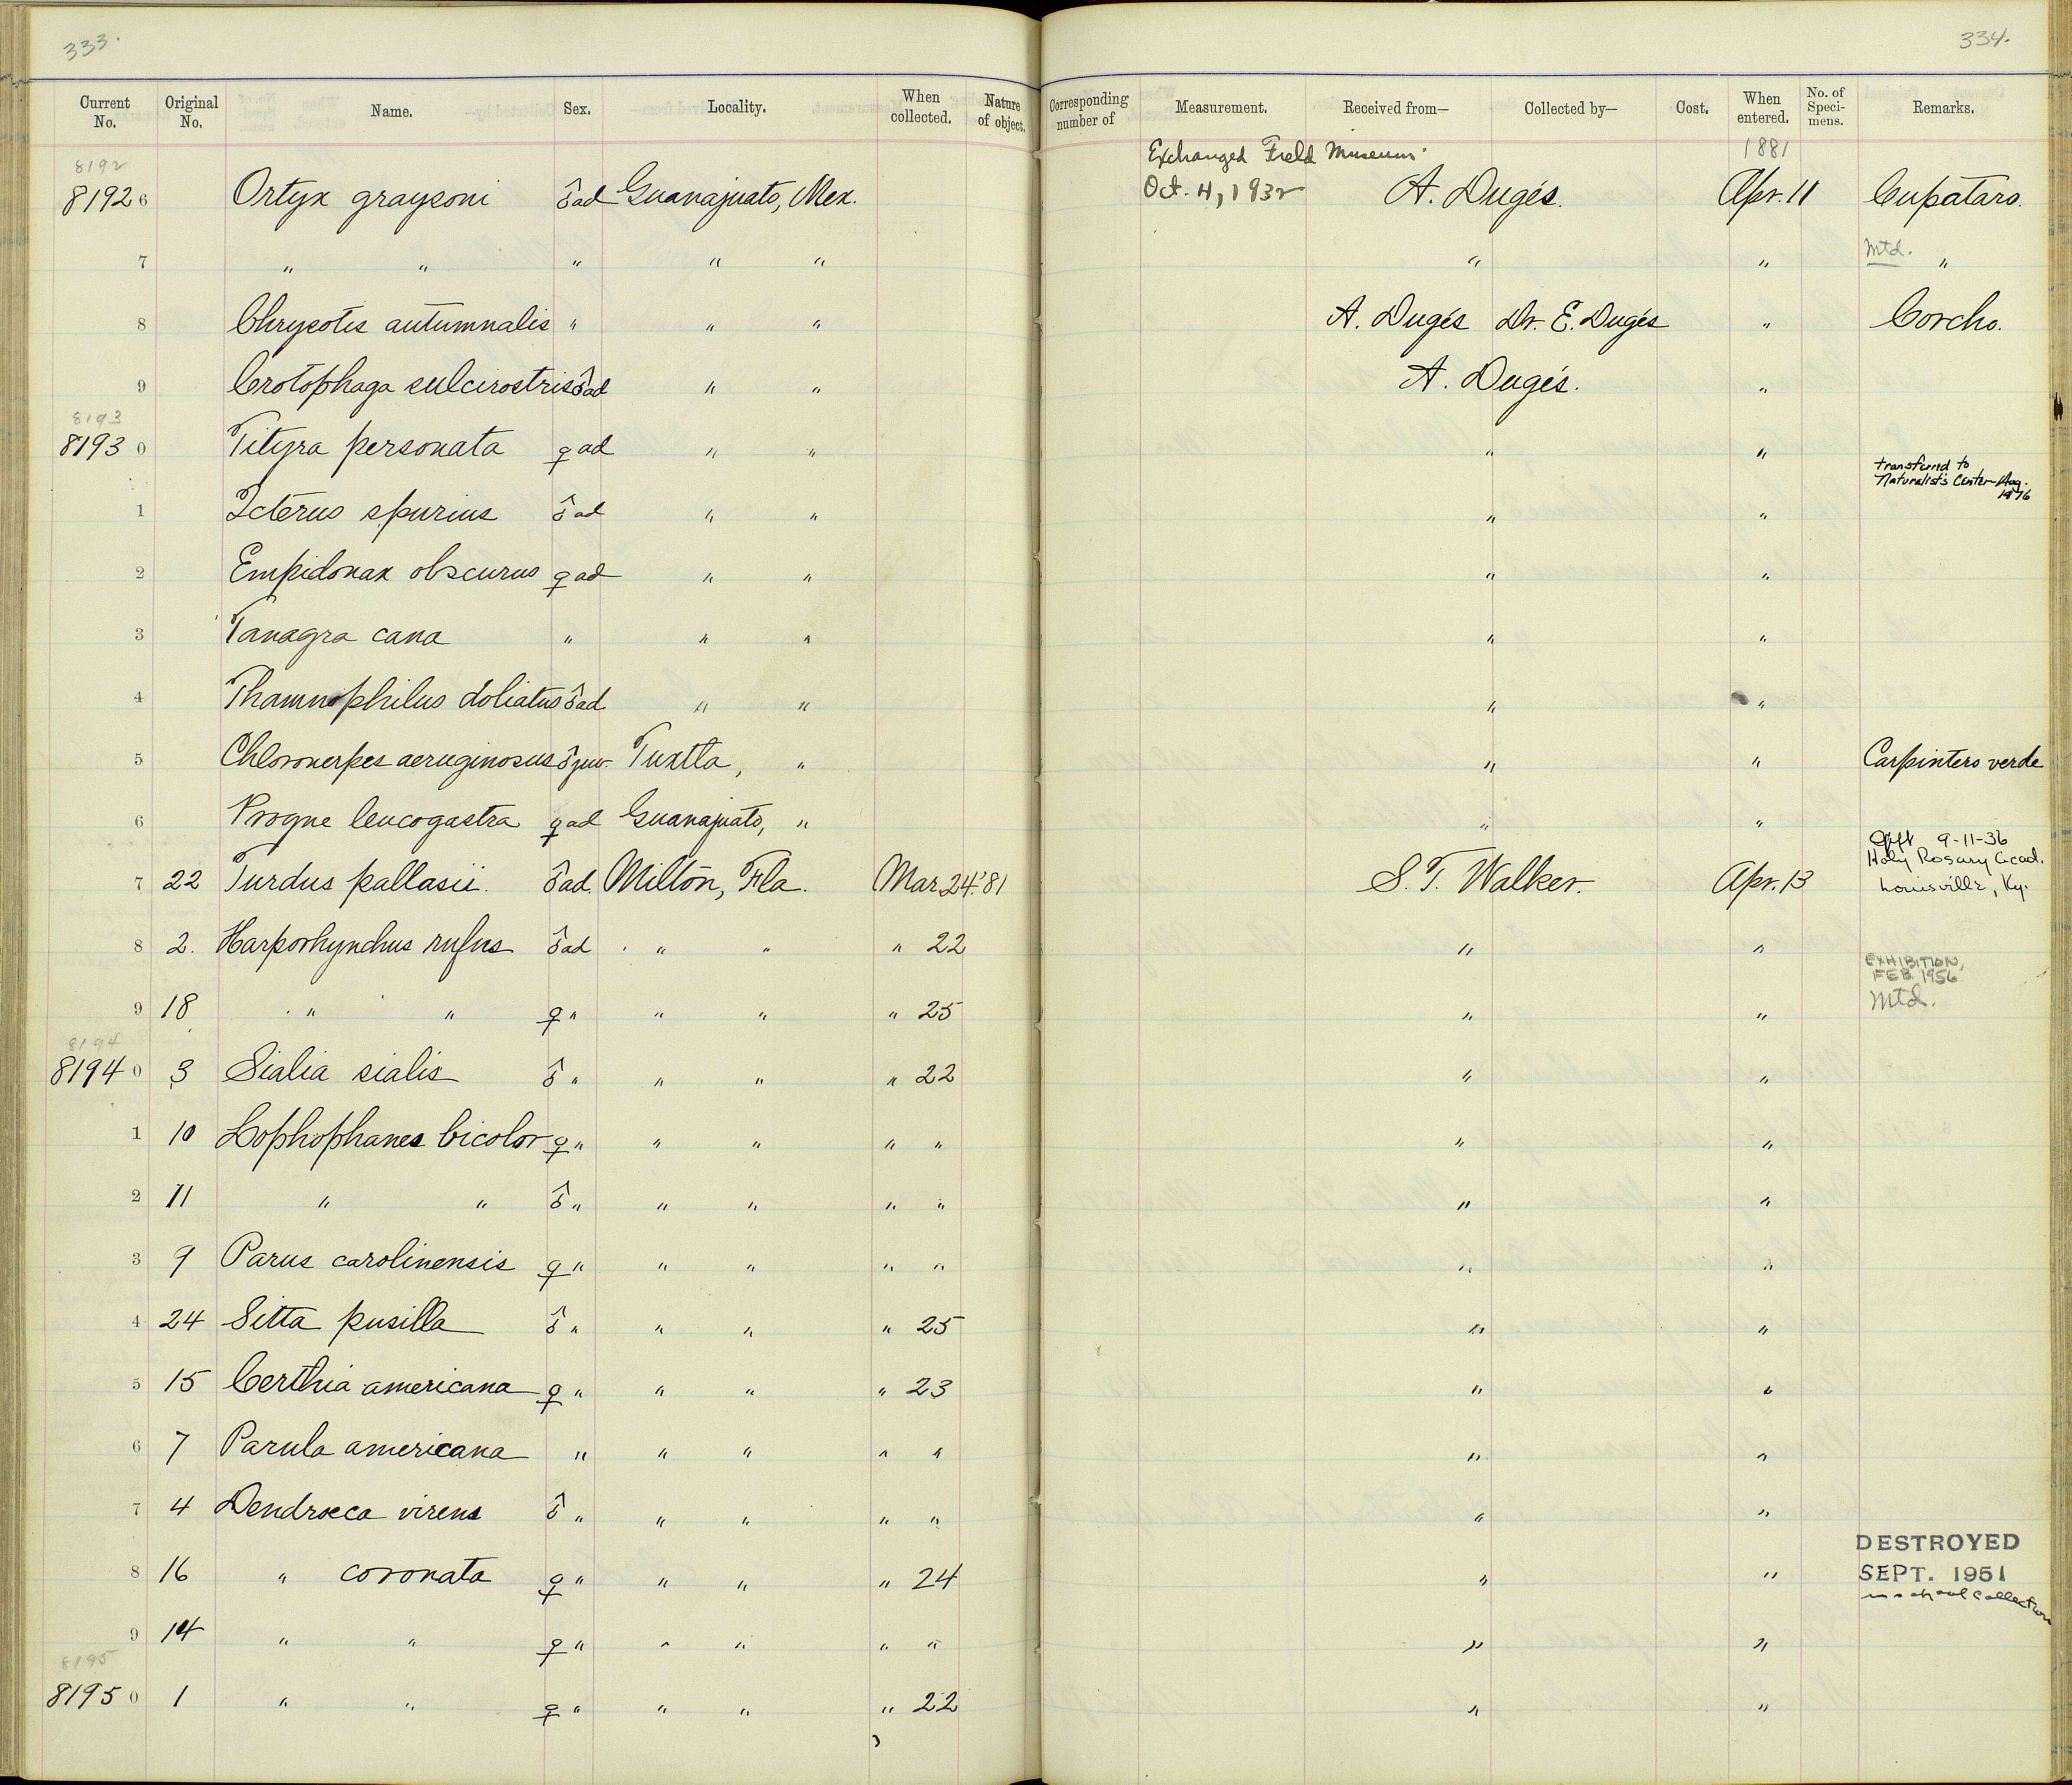 333.
334.
Current No. Original No. Name. Sex. Locality. When collected. Nature of object. Corresponding number of Measurement. Received from— Collected by— Cost. When entered. No. of Speci- mens. Remarks.
Exchanged Field Museum
1881
8192
81926 Ortyx graysoni ♂ad Guanajuato, Mex. Oct. 4, 1932 A. Dugés. Apr. 11 Cupátaro.
Mtd.
7 " " " " " " " "
8 Chrysotis autumnalis " " " A. Dugés Dr. E. Dugés " Corcho.
9 Crotophaga sulcirostris ♂ad " " A. Dugés. "
8193
81930 Tityra personata ♀ad " " " "
transferred to
Naturalist's Center Aug.
1976
1 Icterus spurius ♂ad " " " "
2 Empidonax obscurus ♀ad " " " "
3 Tanagra cana " " " " "
4 Thamnophilus doliatus ♂ad " " " "
5 Chloronerpes aeruginosus ♂juv. Tuxtla, " " " Carpintero verde
6 Progne leucogastra ♀ad Guanajuato, " " "
Gift 9-11-36
Holy Rosary Acad.
Louisville, Ky.
7 22 Turdus pallasii. ♂ad. Milton, Fla. Mar. 24.'81 S. T. Walker. Apr. 13
8 2. Harporhynchus rufus ♂ad " " " 22 " "
EXHIBITION,
FEB. 1956
Mtd.
9 18 " " ♀" " " " 25 " "
8194
81940 3 Sialia sialis ♂" " " " 22 " "
1 10 Lophophanes bicolor ♀" " " " " " "
2 11 " " ♂" " " " " " "
3 9 Parus carolinensis ♀" " " " " " "
4 24 Sitta pusilla ♂" " " " 25 " "
5 15 Certhia americana ♀" " " " 23 " "
6 7 Parula americana " " " " " " "
7 4 Dendroeca virens ♂" " " " " " "
DESTROYED
8 16 " coronata ♀" " " " 24 " " SEPT. 1951
in school collection
9 14 " " ♀" " " " " " "
8195
81950 1 " " ♀" " " " 22 " "